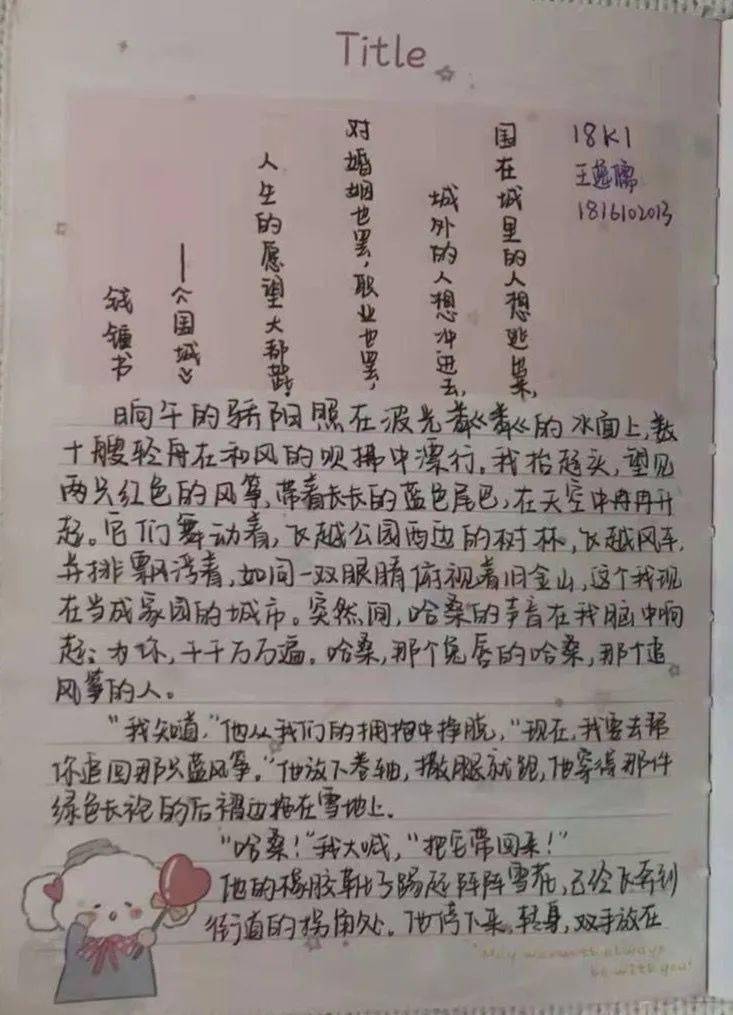 Title
18K1
王逸儒
1816102013
国在城里的人想逃出来,
城外的人想冲进去,
对婚姻也罢,职业也罢,
人生的愿望大都如此
——《围城》
钱锺书
晌午的骄阳照在波光粼粼的水面上,数
十艘轻舟在和风的吹拂中漂行。我抬起头,望见
两只红色的风筝,带着长长的蓝色尾巴,在天空中冉冉升
起。它们舞动着,飞越公园西边的树林,飞越风车,
并排飘浮着,如同一双眼睛俯视着旧金山,这个我现
在当成家园的城市。突然间,哈桑的声音在我脑中响
起:为你,千千万万遍。哈桑,那个兔唇的哈桑,那个追
风筝的人。
"我知道,"他从我们的拥抱中挣脱,"现在,我要去帮
你追回那只蓝风筝。"他放下卷轴,撒腿就跑,他穿得那件
绿色长袍的后褶边拖在雪地上.
"哈桑!"我大喊,"把它带回来!"
他的橡胶靴子踢起阵阵雪花,已经飞奔到
街道的拐角处。他停下来,转身,双手放在
May warmth always
be with you!